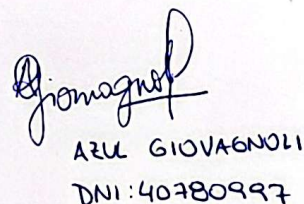 Giovagnoli
AZUL GIOVAGNOLI
DNI: 40780997